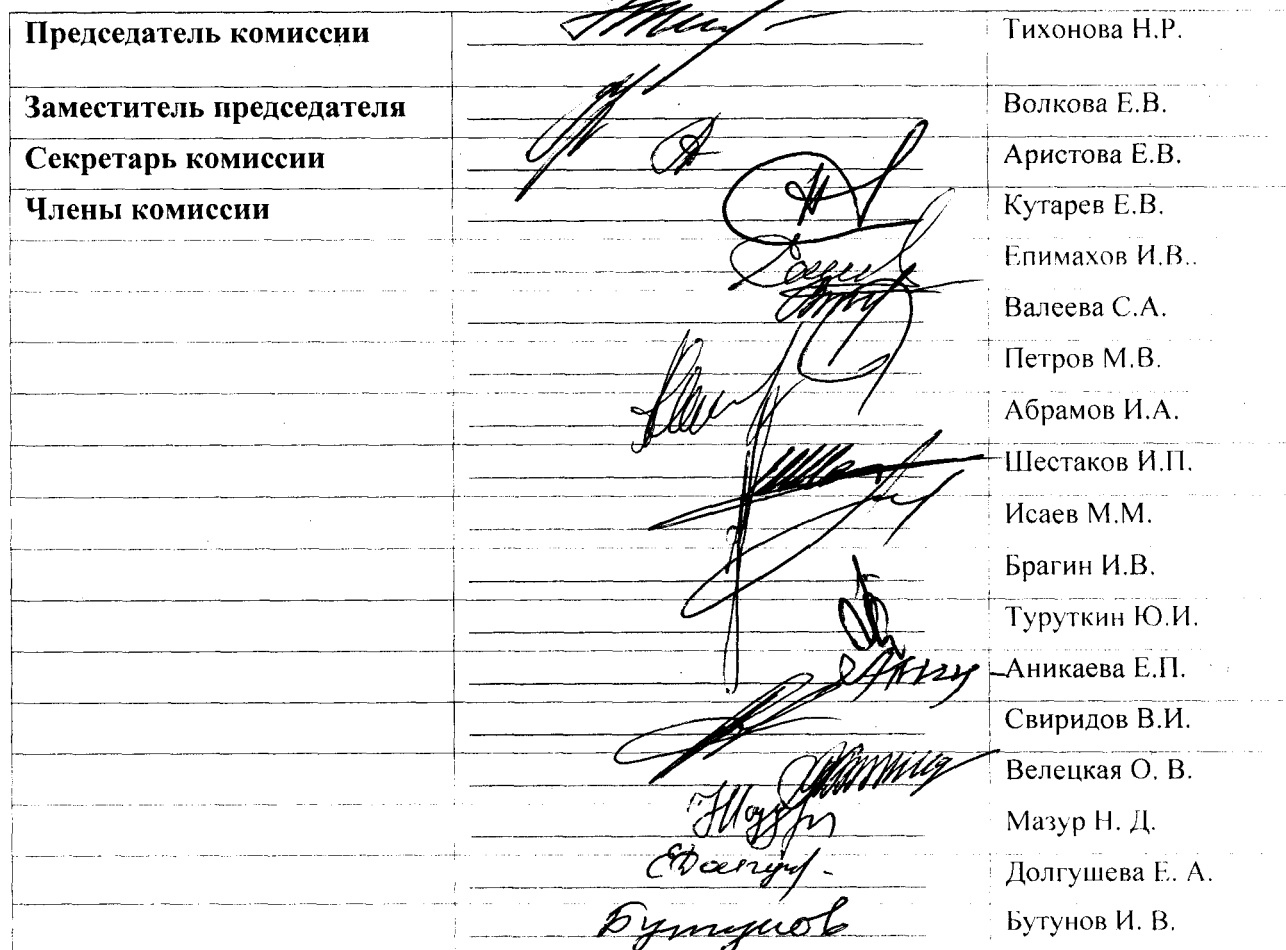 Председатель комиссии Тихонова Н.Р.
Заместитель председателя Волкова Е.В.
Секретарь комиссии Аристова Е.В.
Члены комиссии Кутарев Е.В.
Епимахов И.В..
Валеева С.А.
Петров М.В.
Абрамов И.А.
Шестаков И.П.
Исаев М.М.
Брагин И.В.
Туруткин Ю.И.
Аникаева Е.П.
Свиридов В.И.
Велецкая О. В.
Мазур Н. Д.
Долгушева Е. А.
Бутунов Бутунов И. В.